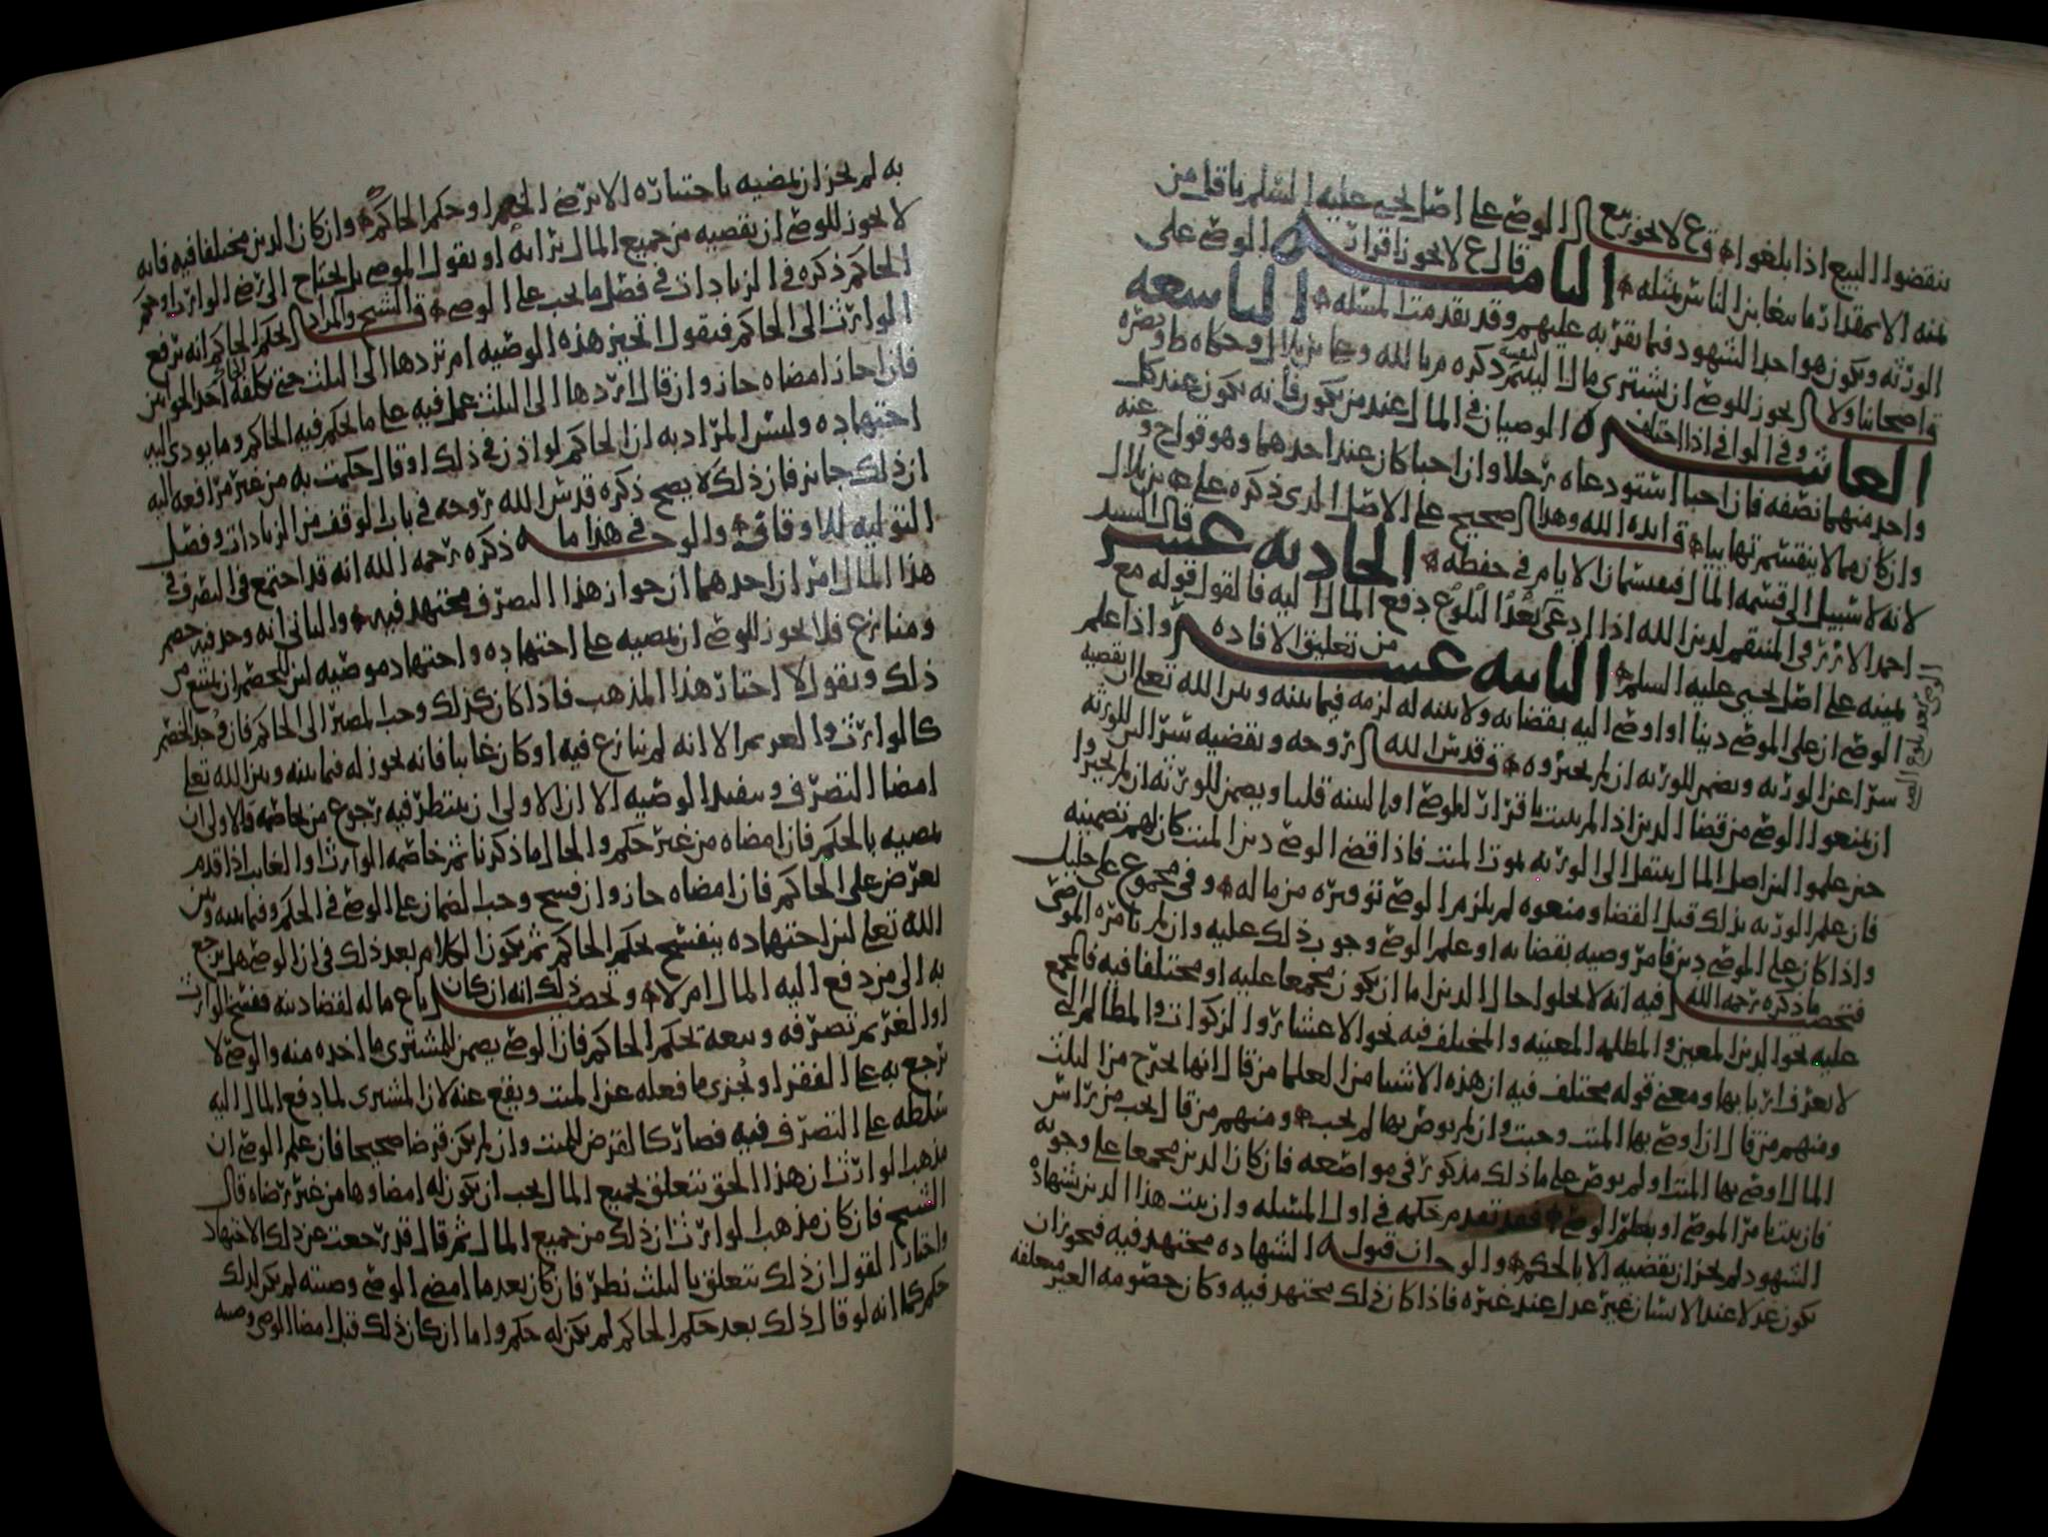 ينقضوا البيع اذا بلغوا وع لا يجوز بيع الوصي على اصل يحيى عليه السلم باقل من
ثمنه الا بمقدار ما يتغابن الناس بمثله الثامنه قال ع لا يجوز اقرار الوصي على
الورثه ويكون هو احد الشهود فيما يقر به عليهم وقد تقدمت المسئله التاسعه
اصحابنا ولا يجوز للوصي ان يشتري مال اليتيم ذكره م بالله وعلي بن بلال وحكاه ط
العاشره وفي الوافي اذا اختلف الوصيان في المال عند من يكون فانه يكون عند كل
واحد منهما نصفه فان احبا استودعاه رجلا وان احبا كان عند احدهما وهو قول ح وعنه
وان كان مما لا ينقسم تهايبا ايده الله وهذا صحيح على الاصل الذي ذكره علي بن بلال
لانه لا سبيل الى قسمه المال فيقسمان الايام في حفظه الحاديه عشر قال السيد
احمد الازرقي المنتقم لدين الله اذا ادعى بعد البلوغ دفع المال اليه فالقول قوله مع
يمينه على اصل يحيى عليه السلم من تعليق الافاده الثانيه عشر واذا علم
الوصي ان على الموصي دينا او اوصى اليه بقضائه ولا بينه له لزمه فيما بينه وبين الله تعالى ان يقضيه
سرا عن الورثه ويضمن للورثه ان لم يجيزوه قدس الله روحه ويقضيه سرا لان للورثه
ان يمنعوا الوصي من قضا الدين اذا لم يثبت باقرار الموصي او بالبينه قلنا ويضمن للورثه ان لم يجيزوا
حين علموا لان اصل المال ينتقل الى الورثه بموت الميت فاذا قضى الوصي دين الميت كان لهم تضمينه
فان علم الورثه بذلك قبل القضا ومنعوه لم يلزم الوصي توفيره من ماله وفي مجموع علي خليل
واذا كان على الموصي دين فامر وصيه بقضائه او علم الوصي وجوب ذلك عليه وان لم يامره الموصي
فتحصيل ما ذكره رحمه الله فيه انه لا يخلوا حال الدين اما ان يكون مجمعا عليه او مختلفا فيه فالمجمع
عليه نحو الدين المعين والمظلمه المعينه والمختلف فيه نحو الاعشار والزكوات والمظالم التي
لا يعرف اربابها ومعنى قوله مختلف فيه ان هذه الاشيا من العلما من قال انها تخرج من الثلث
ومنهم من قال ان اوصى بها الميت وجبت وان لم يوص بها لم يجب ومنهم من قال يجب من راس
المال اوصى بها الميت او لم يوص على ما ذلك مذكور في مواضعه فان كان الدين مجمعا على وجوبه
فان ثبت بامر الموصي او بعلم الوصي فقد تقدم حكمه في اول المسئله وان ثبت هذا الدين بشهاده
الشهود لم يجز ان يقضيه الا بالحكم والوجه ان قبول الشهاده مجتهد فيه فيجوز ان
يكون عدلا عند الانسان غير عدل عند غيره فاذا كان ذلك مجتهد فيه وكان خصومه الغير متعلقه
به لم يجز ان يمضيه باجتهاده الا برضى الخصم او حكم الحاكم وان كان الدين مختلفا فيه فانه
لا يجوز للوصي ان يقضيه من جميع المال برايه او بقول الموصي بل يحتاج الى رضى الوارث او حكم
الحاكم ذكره في الزيادات في فصل ما يجب على الوصي الشيخ والمراد بالحكم الحاكم انه يرفع
الوارث الى الحاكم فيقول اتجيز هذه الوصيه ام تردها الى الثلث حتى تكلفه احد الجوابين
فان اجاز امضاه جاز وان قال اردها الى الثلث عمل فيه على ما يحكم فيه الحاكم وما يودي اليه
اجتهاده وليس المراد به ان الحاكم لو اذن في ذلك او قال حكمت به من غير مرافعه اليه
ان ذلك جايز فان ذلك لا يصح ذكره قدس الله روحه في باب الوقف من الزيادات وفصل
التوليه للاوقاف والوجه في هذا ما ذكره رحمه الله انه قد اجتمع في التصرف في
هذا المال امران احدهما ان جواز هذا التصرف مجتهد فيه والثاني انه وجد فيه خصم
ومنازع فلا يجوز للوصي ان يمضيه على اجتهاده واجتهاد موصيه لان للخصم ان يمتنع من
ذلك ويقول لا اختار هذا المذهب فاذا كان كذلك وجب المصير الى الحاكم فان وجد الخصم
كالوارث والغريم الا انه لم ينازع فيه او كان غائبا فانه يجوز له فيما بينه وبين الله تعالى
امضا التصرف وتنفيذ الوصيه الا ان الاولى ان ينتظر فيه رجوع من يخاصمه فالاولى ان
يمضيه بالحكم فان امضاه من غير حكم والحال ما ذكرنا ثم خاصمه الوارث او الغايب اذا قدم
يعرض على الحاكم فان امضاه جاز وان فسخ وجب الضمان على الوصي في الحكم وفيما بينه وبين
الله تعالى لان اجتهاده ينفسخ بحكم الحاكم ثم يكون الكلام بعد ذلك في ان الوصي هل يرجع
به الى من دفع اليه المال ام لا وتحصيل ذلك انه ان كان باع ماله لقضا دينه ففسخ الوارث
او الغريم تصرفه وبيعه بحكم الحاكم فان الوصي يضمن للمشتري ما اخذه منه والوصي لا
يرجع به على الفقرا ويجزي ما فعله عن الميت ويقع عنه لان المشتري لما دفع المال اليه
سلطه على التصرف فيه فصار كالقرض للميت وان لم يكن قرضا صحيحا فان علم الوصي ان
مذهب الوارث ان هذا الحق يتعلق بجميع المال يجب ان يكون له امضاوها من غير رضاه قال
الشيخ فان كان مذهب الوارث ان ذلك من جميع المال ثم قال قد رجعت عن ذلك الاجتهاد
واختار القول ان ذلك يتعلق بالثلث نظر فان كان بعد ما امضى الوصي وصيته لم يكن لذلك
حكم كما انه لو قال ذلك بعد حكم الحاكم لم يكن له حكم واما ان كان ذلك قبل امضا الوصي وصيه